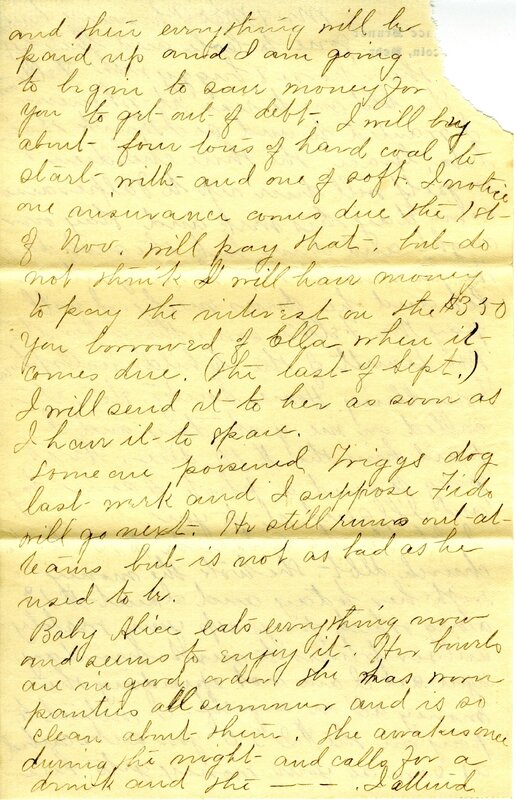 and then everything will be
paid up and I am going
to begin to save money for
you to get out of debt. I will buy
about four tons of hard coal to
start with and one of soft. I notice
one insurance comes due the 1st
of Nov. will pay that. but do
not think I will have money
to pay the interest on the $350
you borrowed of Ella when it
comes due. (the last of Sept.)
I will send it to her as soon as
I have it to spare.
Someone poisened Triggs dog
last week and I suppose Fido
will go next. He still runs out at
teams but is not as bad as he
used to be.
Baby Alice eats everything now
and seems to enjoy it. Her bowels
are in good order she has worn
panties all summer and is so
clean about them. She awakes once
during the night and calls for a
drink and the — — — . I attend